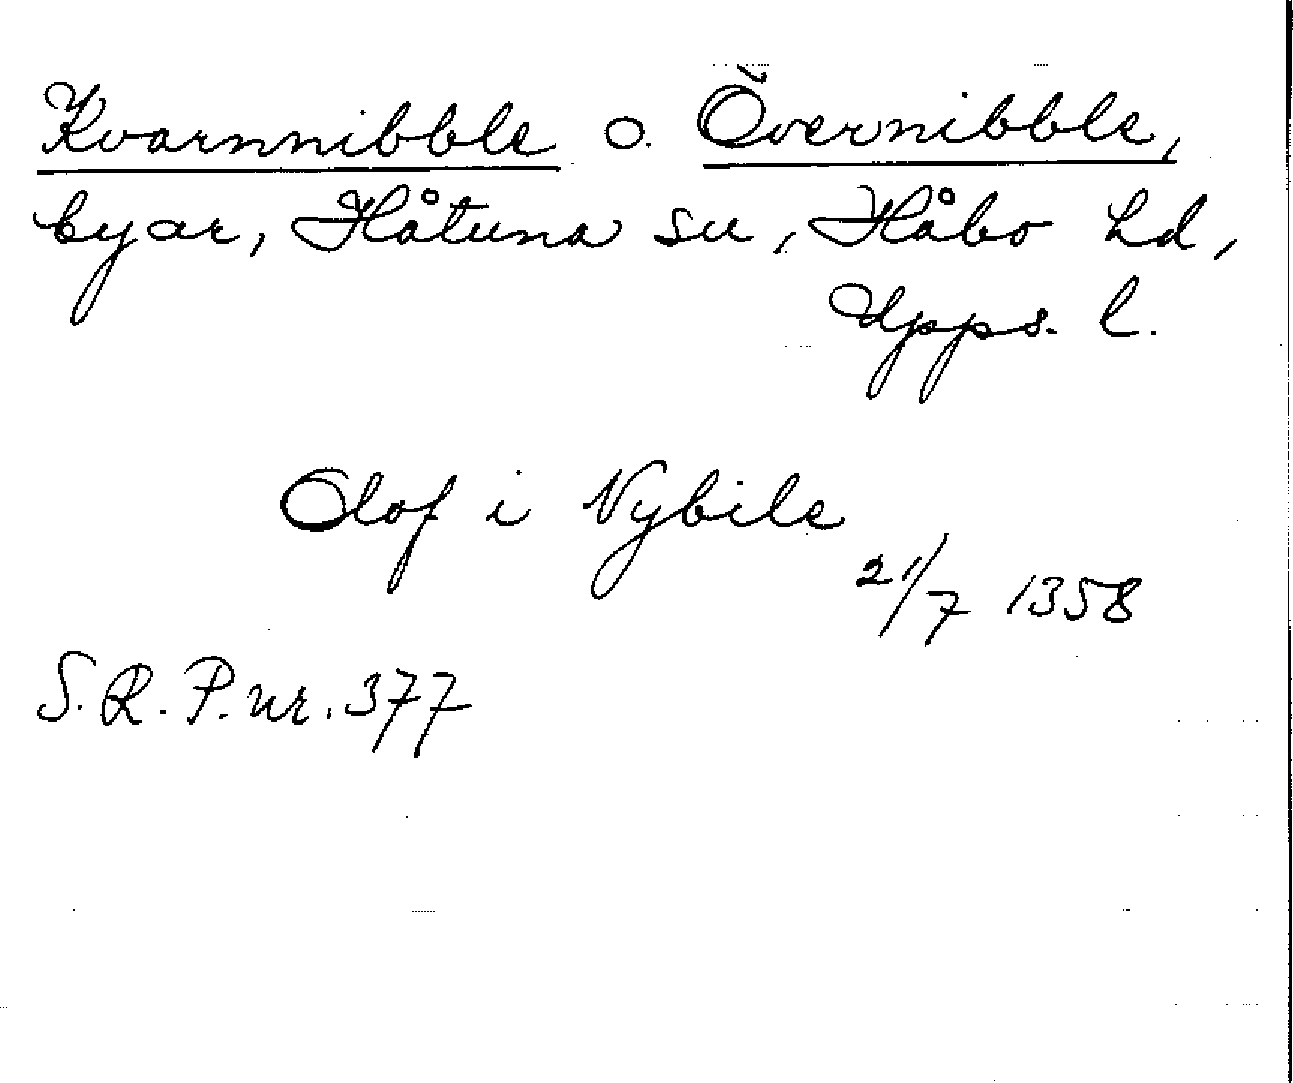 Kvarnnibble o. Övernibble,
byar, Håtuna sn, Håbo hd,
Upps. l.
Olof i Nybile
21/7 1358
S.R.P. nr. 377